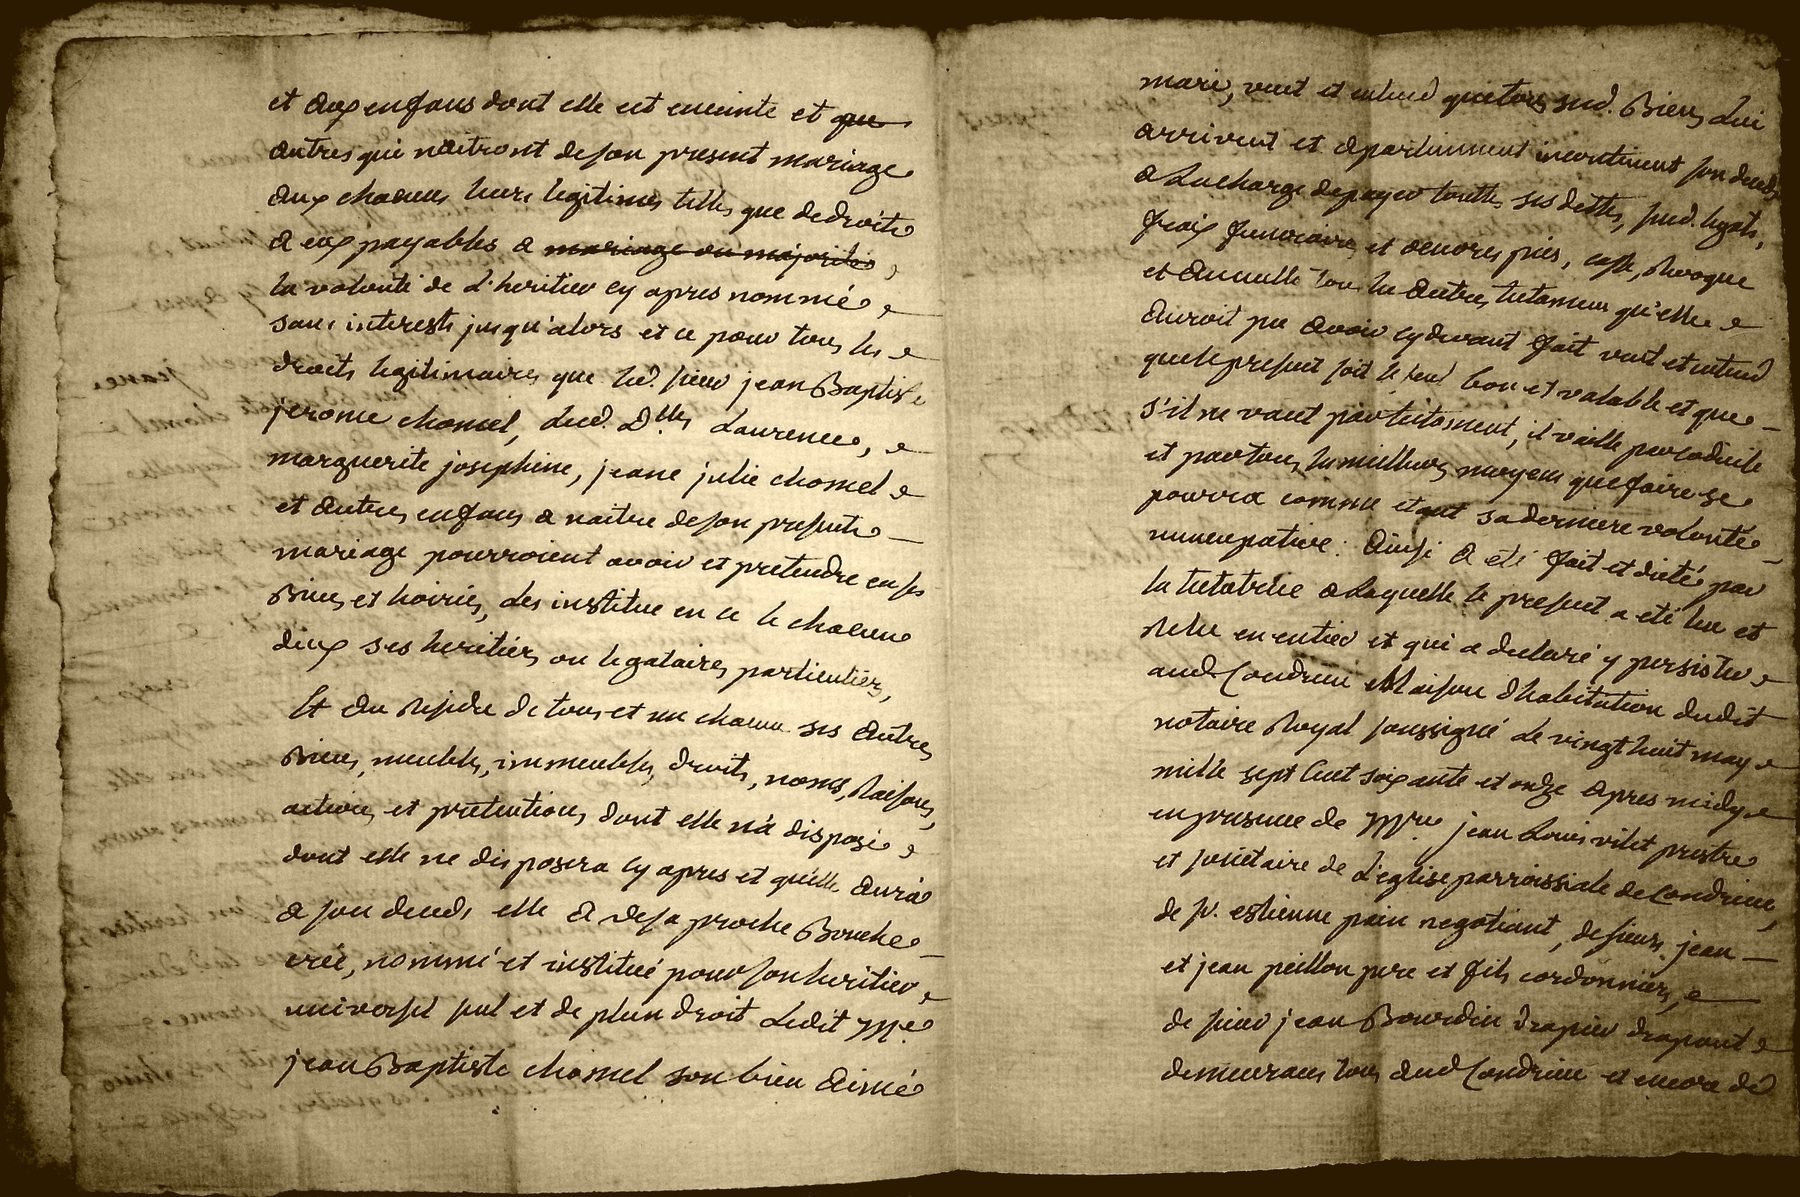 et aux enfans dont elle est enceinte et que
autres qui naitront de son present mariage
aux chacuns leurs legitimes telles que de droit
a eux payables a mariage ou majorité,
la volonté de l'heritier cy apres nommé
sans interests jusqu'alors et ce pour tous les
droits legitimaires que led. sieur jean Baptiste
jerome chomel, lesd. D.lles Laurence,
marguerite josephine, jeane julie chomel
et autres enfans a naitre de son present
mariage pourroient avoir et pretendre en ses
Biens et hoiries, les institue en ce le chacune
deux ses heritiers ou legataires particuliers,
Et au Residu de tous et un chacun ses autres
Biens, meubles, immeubles, droits, noms, Raisons,
actions et pretentions dont elle n'a disposé
dont elle ne disposera cy apres et quelle aura
a son deceds elle a de sa proche Bouche
créé, nommé et institué pour son heritier
universel seul et de plein droit Ledit Mre
jean Baptiste chomel son bien aimé
mari, veut et entend que tous sesd. Biens Lui
arrivent et apartiennent incontinent son deceds
a La charge de payer toutes ses dettes, sesd. legats,
fraix funeraires et oeuvres pies, casse, Revoque
et annulle tous les autres testamens qu'elle
auroit pu avoir cy devant fait veut et entend
que le present soit le seul bon et valable et que
s'il ne vaut par testament, il vaille par codicile
et par tous les meilleurs moyens que faire se
pourra comme etant sa derniere volonté
nuncupative. Ainsi a eté fait et dicté par
la testatrice a Laquelle le present a eté lu et
Relu en entier et qui a declaré y persister
aud. Condrieu Maison d'habitation dudit
notaire Royal soussigné le vingt huit may
mille sept cent soixante et onze apres midy
en presence de Mre jean Louis vilet prestre
et societaire de L'eglise parroissiale de Condrieu,
de sr. estienne pain negotiant, de sieurs jean
et jean peillon pere et fils cordonniers,
de sieur jean Bourdin drapier drapant
demeurans tous aud. Condrieu et encore de